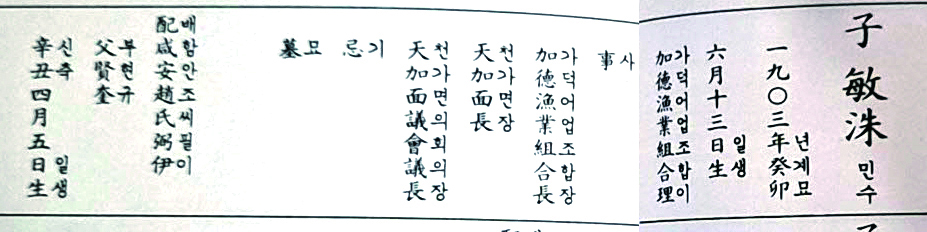 子敏洙 민수
一九〇三年癸卯 년계묘
六月十三日生 일생
加德漁業組合理 가덕어업조합이
事 사
加德漁業組合長 가덕어업조합장
天加面長 천가면장
天加面議會議長 천가면의회의장
忌 기
墓 묘
配咸安趙氏弼伊 배함안조씨필이
父賢奎 부현규
辛丑四月五日生 신축일생